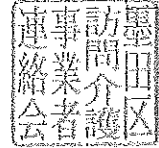 墨田区
訪問介護
事業者
連絡会